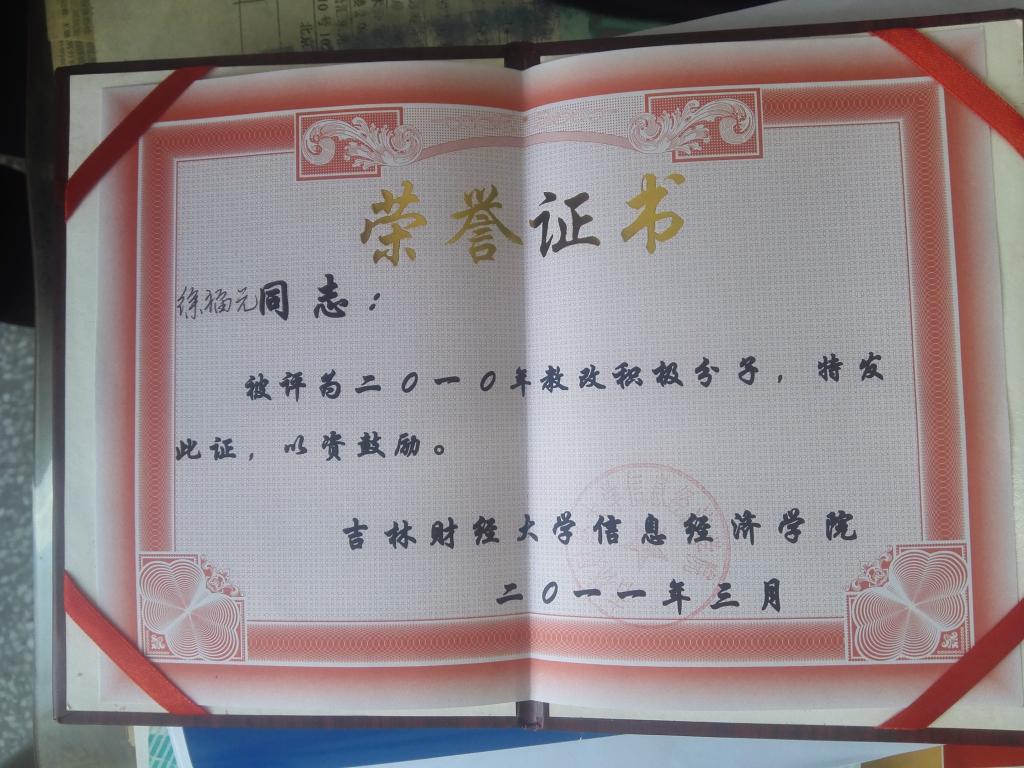 荣誉证书
徐福元同志：
被评为二〇一〇年教改积极分子，特发
此证，以资鼓励。
吉林财经大学信息经济学院
二〇一一年三月